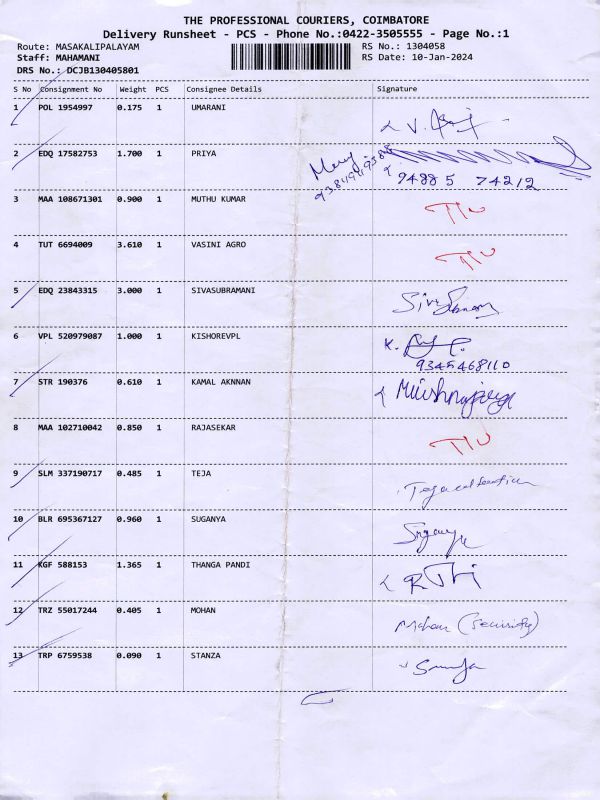 THE PROFESSIONAL COURIERS, COIMBATORE
Delivery Runsheet - PCS - Phone No.:0422-3505555 - Page No.:1
Route: MASAKALIPALAYAM RS No.: 1304058
Staff: MAHAMANI RS Date: 10-Jan-2024
DRS No.: DCJB130405801
S No Consignment No Weight PCS Consignee Details Signature
1 POL 1954997 0.175 1 UMARANI
2 EDQ 17582753 1.700 1 PRIYA
94885 74212
3 MAA 108671301 0.900 1 MUTHU KUMAR
4 TUT 6694009 3.610 1 VASINI AGRO
5 EDQ 23843315 3.000 1 SIVASUBRAMANI
6 VPL 520979087 1.000 1 KISHOREVPL K.
9345468110
7 STR 190376 0.610 1 KAMAL AKNNAN
8 MAA 102710042 0.850 1 RAJASEKAR
9 SLM 337190717 0.485 1 TEJA
10 BLR 695367127 0.960 1 SUGANYA
11 KGF 588153 1.365 1 THANGA PANDI
12 TRZ 55017244 0.405 1 MOHAN Mohan (Security)
13 TRP 6759538 0.090 1 STANZA